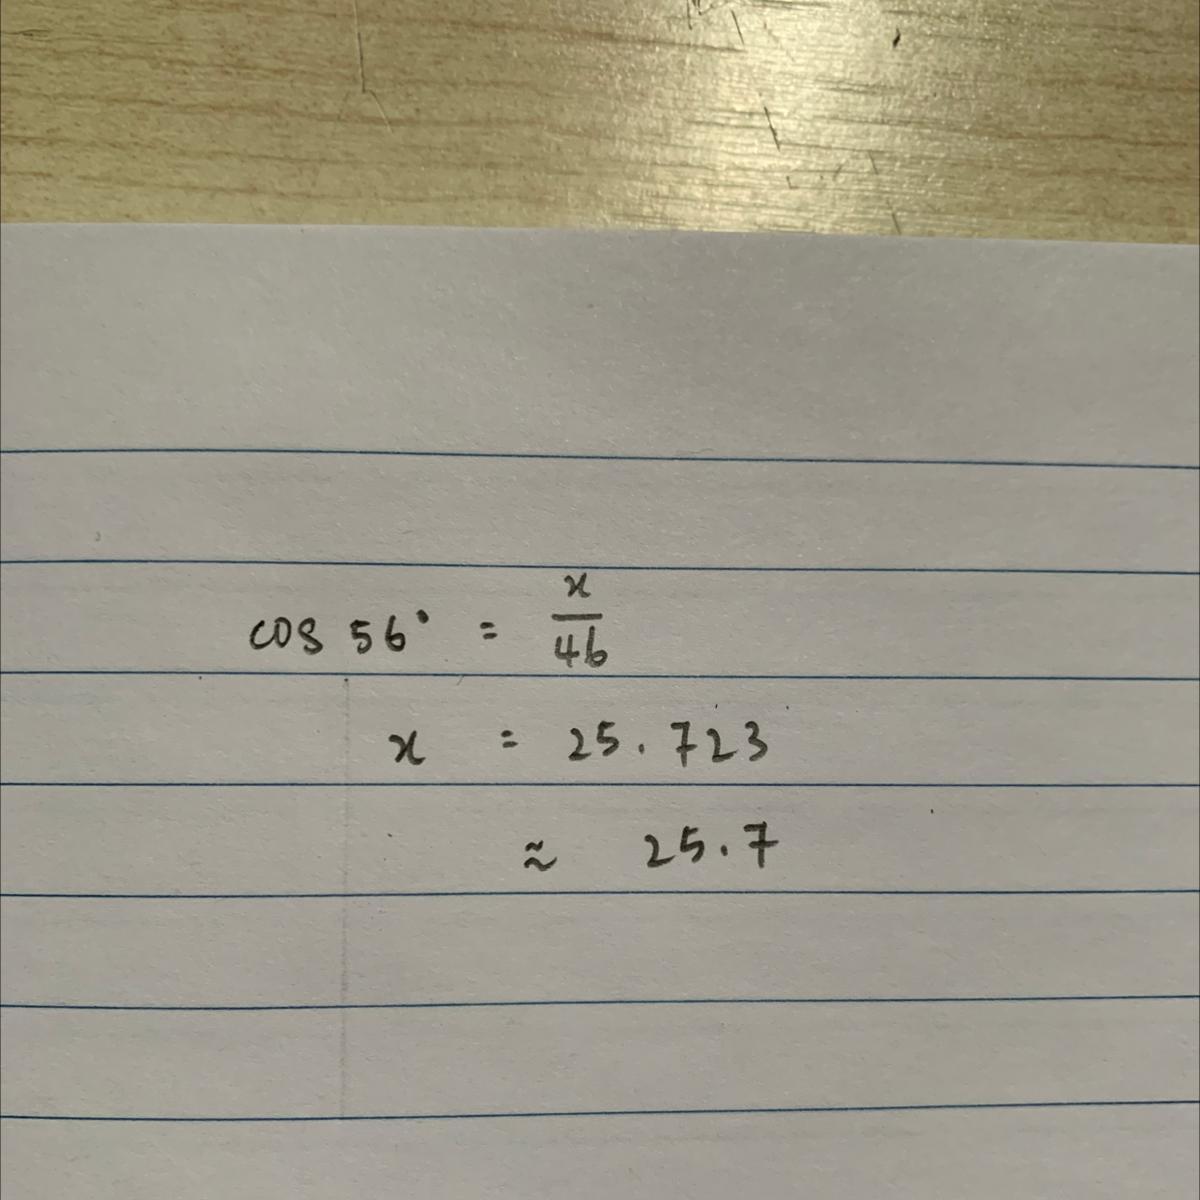 cos 56° = x/46
x = 25.723
≈ 25.7